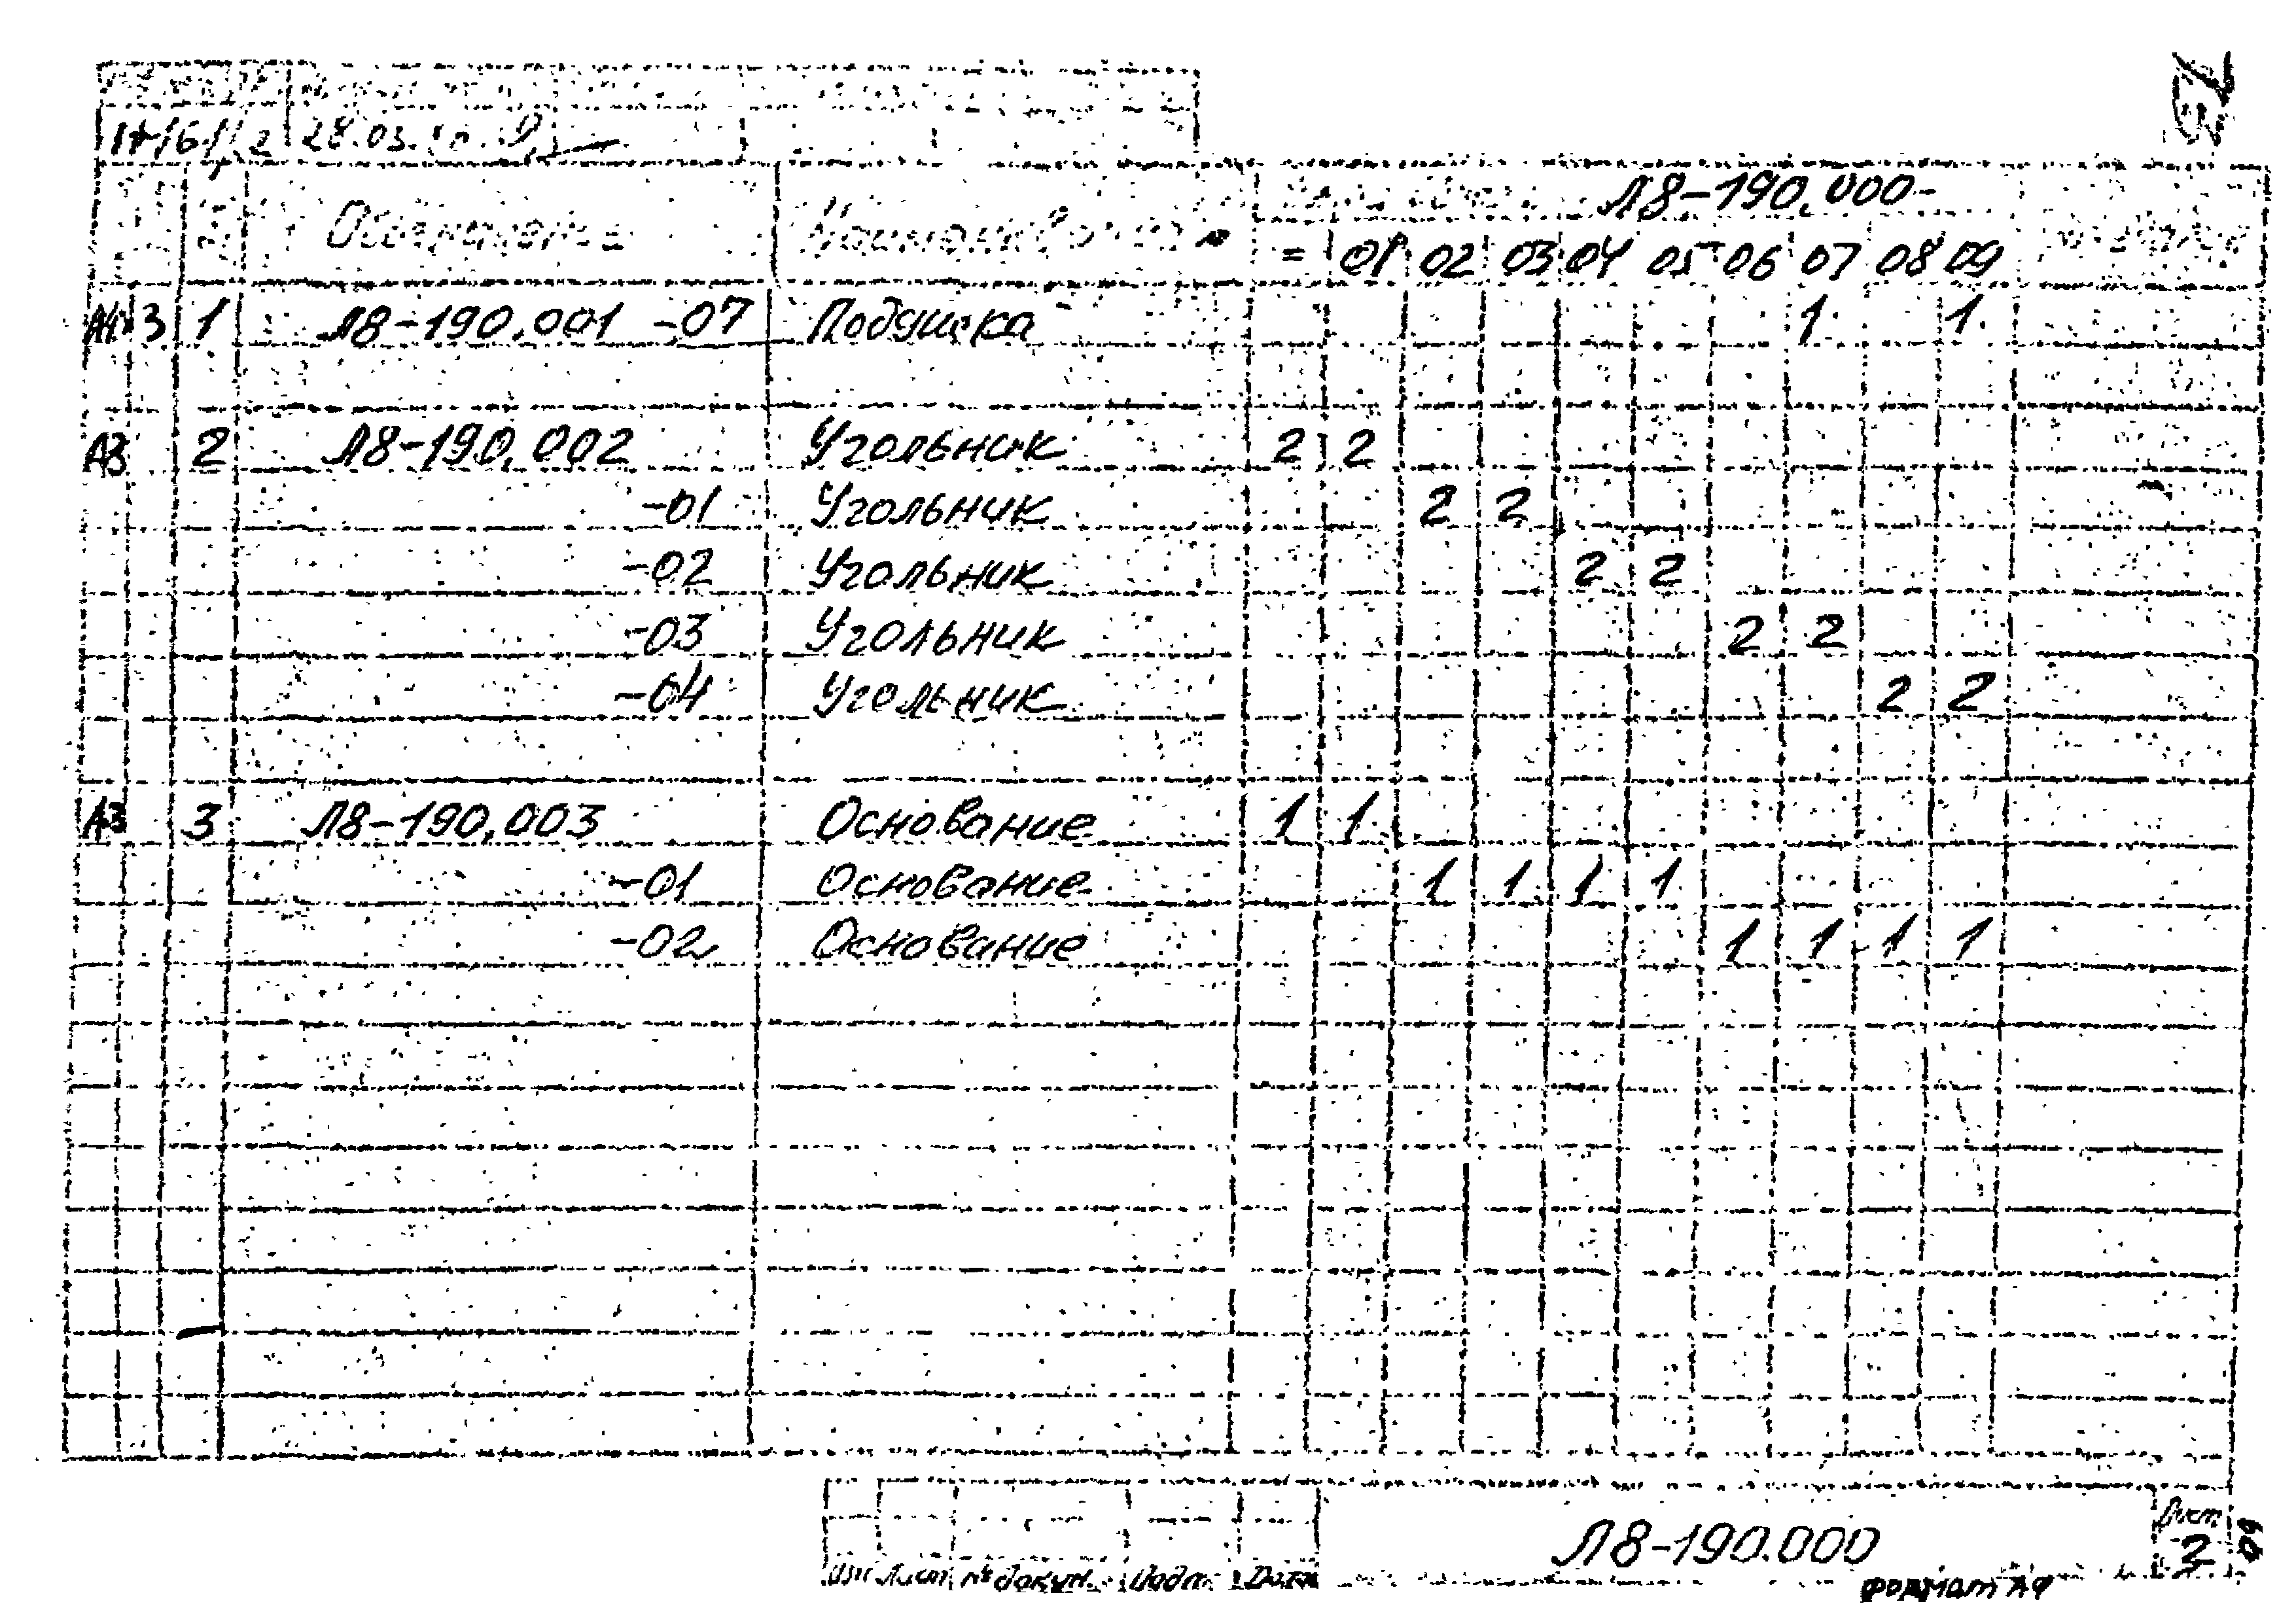 28.03.
Обозначение Наименование Л8-190.000-
- 01 02 03 04 05 06 07 08 09
А4 3 1 Л8-190.001 -07 Подушка 1 1
А3 2 Л8-190.002 Угольник 2 2
-01 Угольник 2 2
-02 Угольник 2 2
-03 Угольник 2 2
-04 Угольник 2 2
А3 3 Л8-190.003 Основание 1 1
-01 Основание 1 1 1 1
-02 Основание 1 1 1 1
Л8-190.000
Лист
2
Изм Лист № докум. Подп. Дата
Формат А4